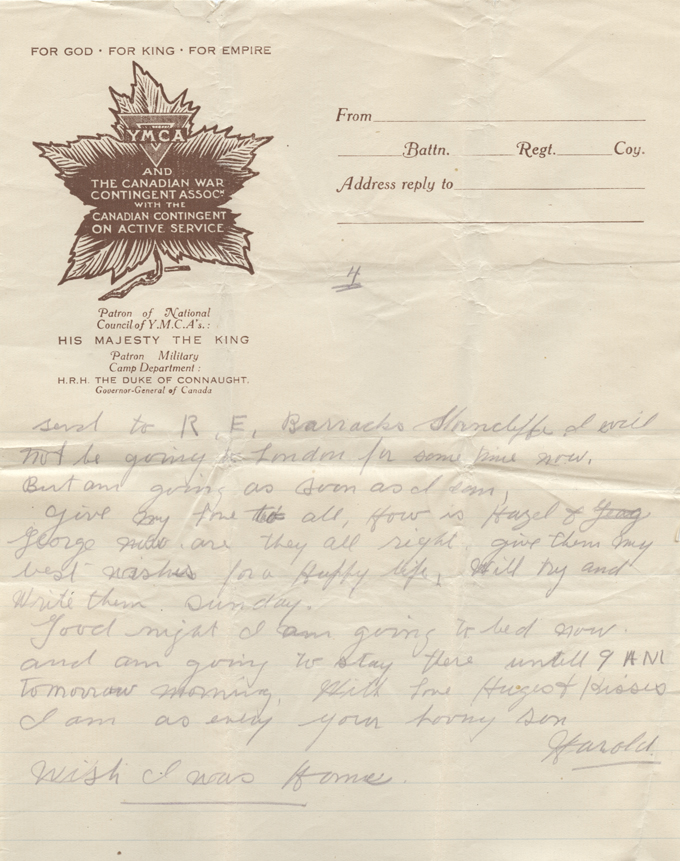 FOR GOD · FOR KING · FOR EMPIRE
YMCA
AND
THE CANADIAN WAR
CONTINGENT ASSOCN
WITH THE
CANADIAN CONTINGENT
ON ACTIVE SERVICE
Patron of National
Council of Y.M.C.A's.:
HIS MAJESTY THE KING
Patron Military
Camp Department:
H.R.H. THE DUKE OF CONNAUGHT.
Governor-General of Canada
From
Battn. Regt. Coy.
Address reply to
4
send to R. E. Barracks Shorncliffe I will
not be going to London for some time now.
But am going as soon as I can,
Give my love to all, How is Hazel &
George now are they all right. give them my
best wishes for a Happy life, Will try and
Write them. Sunday.
Good night I am going to bed now.
and am going to stay there untill 9 AM
tomorrow morning. With love Huges & Kisses
I am as every your loving son
Harold.
Wish I was Home.